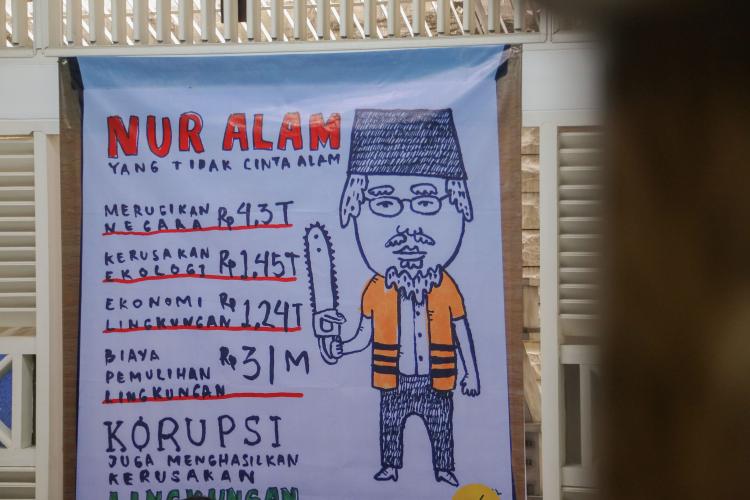 NUR ALAM
YANG TIDAK CINTA ALAM
MERUGIKAN
NEGARA Rp 4,3T
KERUSAKAN
EKOLOGI Rp 1,45T
EKONOMI Rp
LINGKUNGAN 1,24T
BIAYA
PEMULIHAN Rp 31M
LINGKUNGAN
KORUPSI
JUGA MENGHASILKAN
KERUSAKAN
LINGKUNGAN